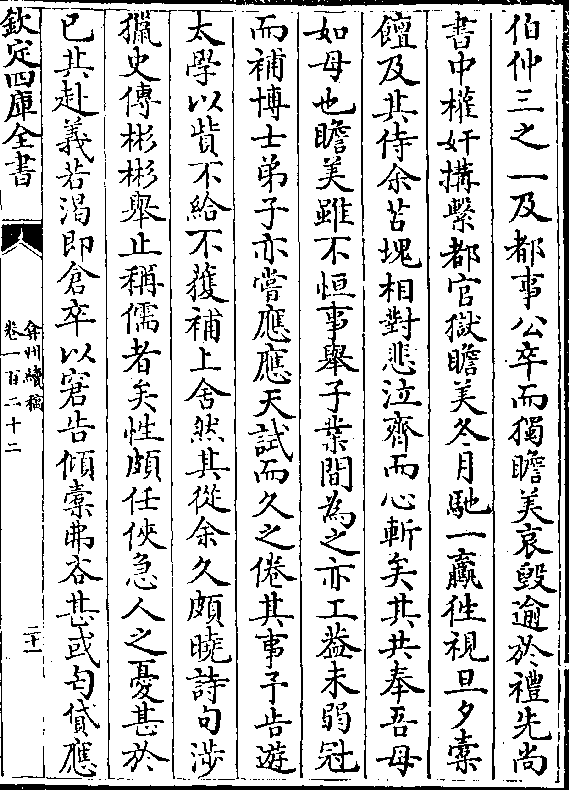 伯仲三之一及都事公卒而獨瞻美哀毀逾於禮先尚
書中權奸搆繫都官獄瞻美冬月馳一羸徃視旦夕橐
饘及其侍余苫塊相對悲泣齊而心斬矣其共奉吾母
如母也瞻美雖不恒事舉子業間為之亦工葢未弱冠
而補博士弟子亦嘗應應天試而久之倦其事予告遊
太學以貲不給不獲補上舍然其從余久頗曉詩句涉
獵史傳彬彬舉止稱儒者矣性頗任俠急人之憂甚於
已其赴義若渴即倉卒以窘告傾橐弗吝甚或匄貸應
欽定四庫全書
弇州續稿
卷一百二十二
二十一